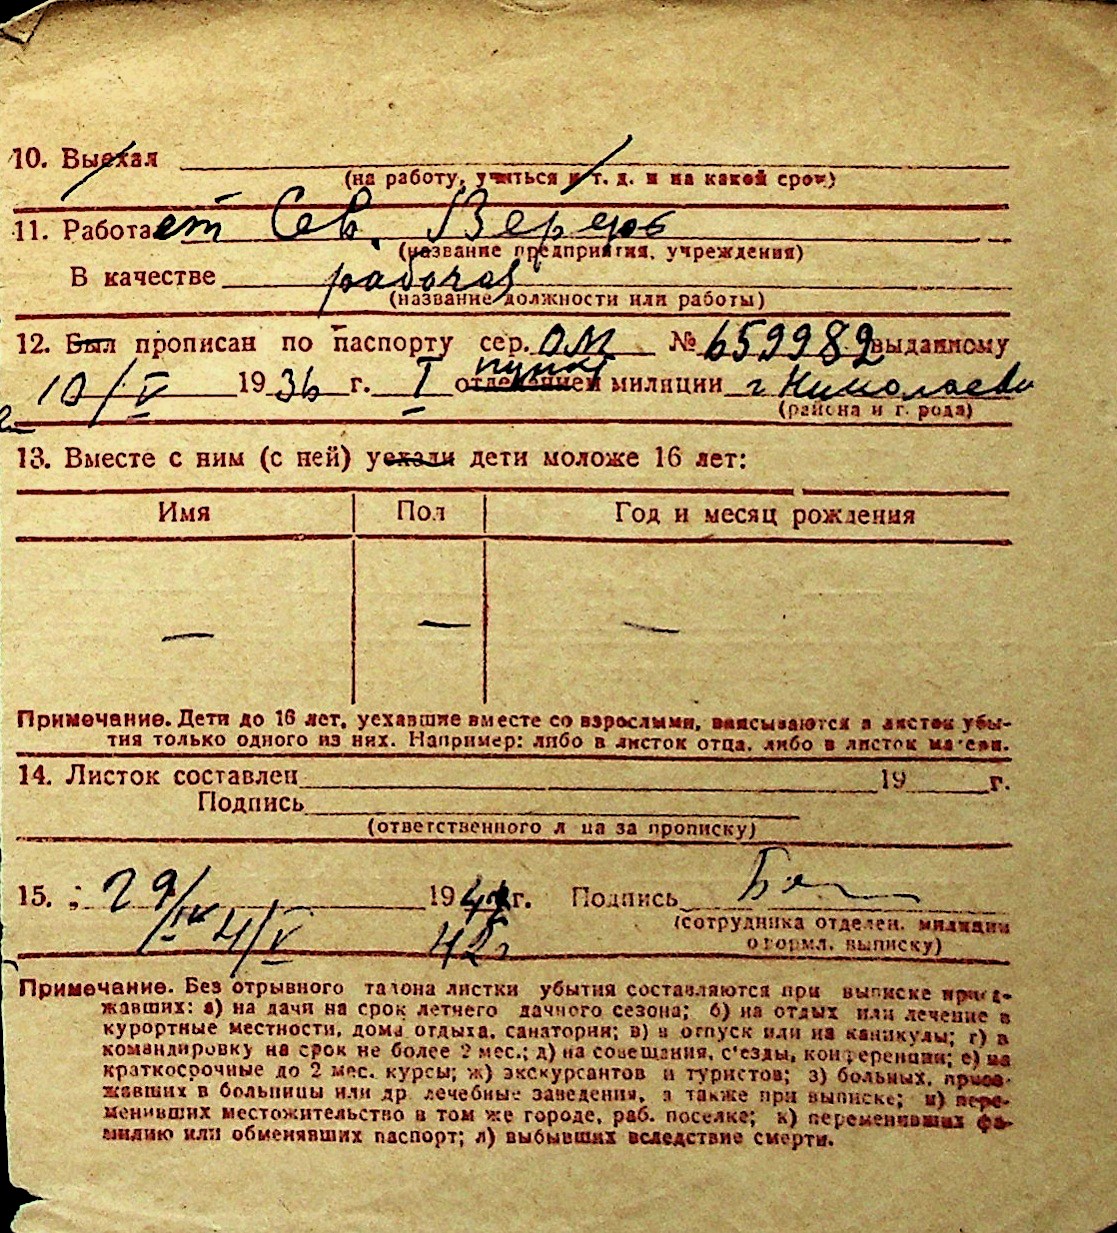 10. Выехал
(на работу, учиться и т. д. и на какой срок)
11. Работает Сев. Верфь
(название предприятия, учреждения)
В качестве рабочая
(название должности или работы)
12. Был прописан по паспорту сер. ОМ № 659982 выданному
10/V 1936 г. I отделением пункт милиции г. Николаева
(района и г. рода)
13. Вместе с ним (с ней) уехали дети моложе 16 лет:
Имя Пол Год и месяц рождения
— — —
Примечание. Дети до 16 лет, уехавшие вместе со взрослыми, вписываются в листок убы-
тия только одного из них. Например: либо в листок отца, либо в листок матери.
14. Листок составлен 19 г.
Подпись
(ответственного л ца за прописку)
15. 29/IV 1942 г. Подпись
4/V 42 г
(сотрудника отделен. милиции
оформл. выписку)
Примечание. Без отрывного талона листки убытия составляются при выписке приез-
жавших: а) на дачи на срок летнего дачного сезона; б) на отдых или лечение в
курортные местности, дома отдыха, санатории; в) в отпуск или на каникулы; г) в
командировку на срок не более 2 мес.; д) на совещания, с'езды, конференции; е) на
краткосрочные до 2 мес. курсы; ж) экскурсантов и туристов; з) больных, приез-
жавших в больницы или др лечебные заведения, а также при выписке; и) пере-
менивших местожительство в том же городе, раб. поселке; к) переменивших фа-
милию или обменявших паспорт; л) выбывших вследствие смерти.